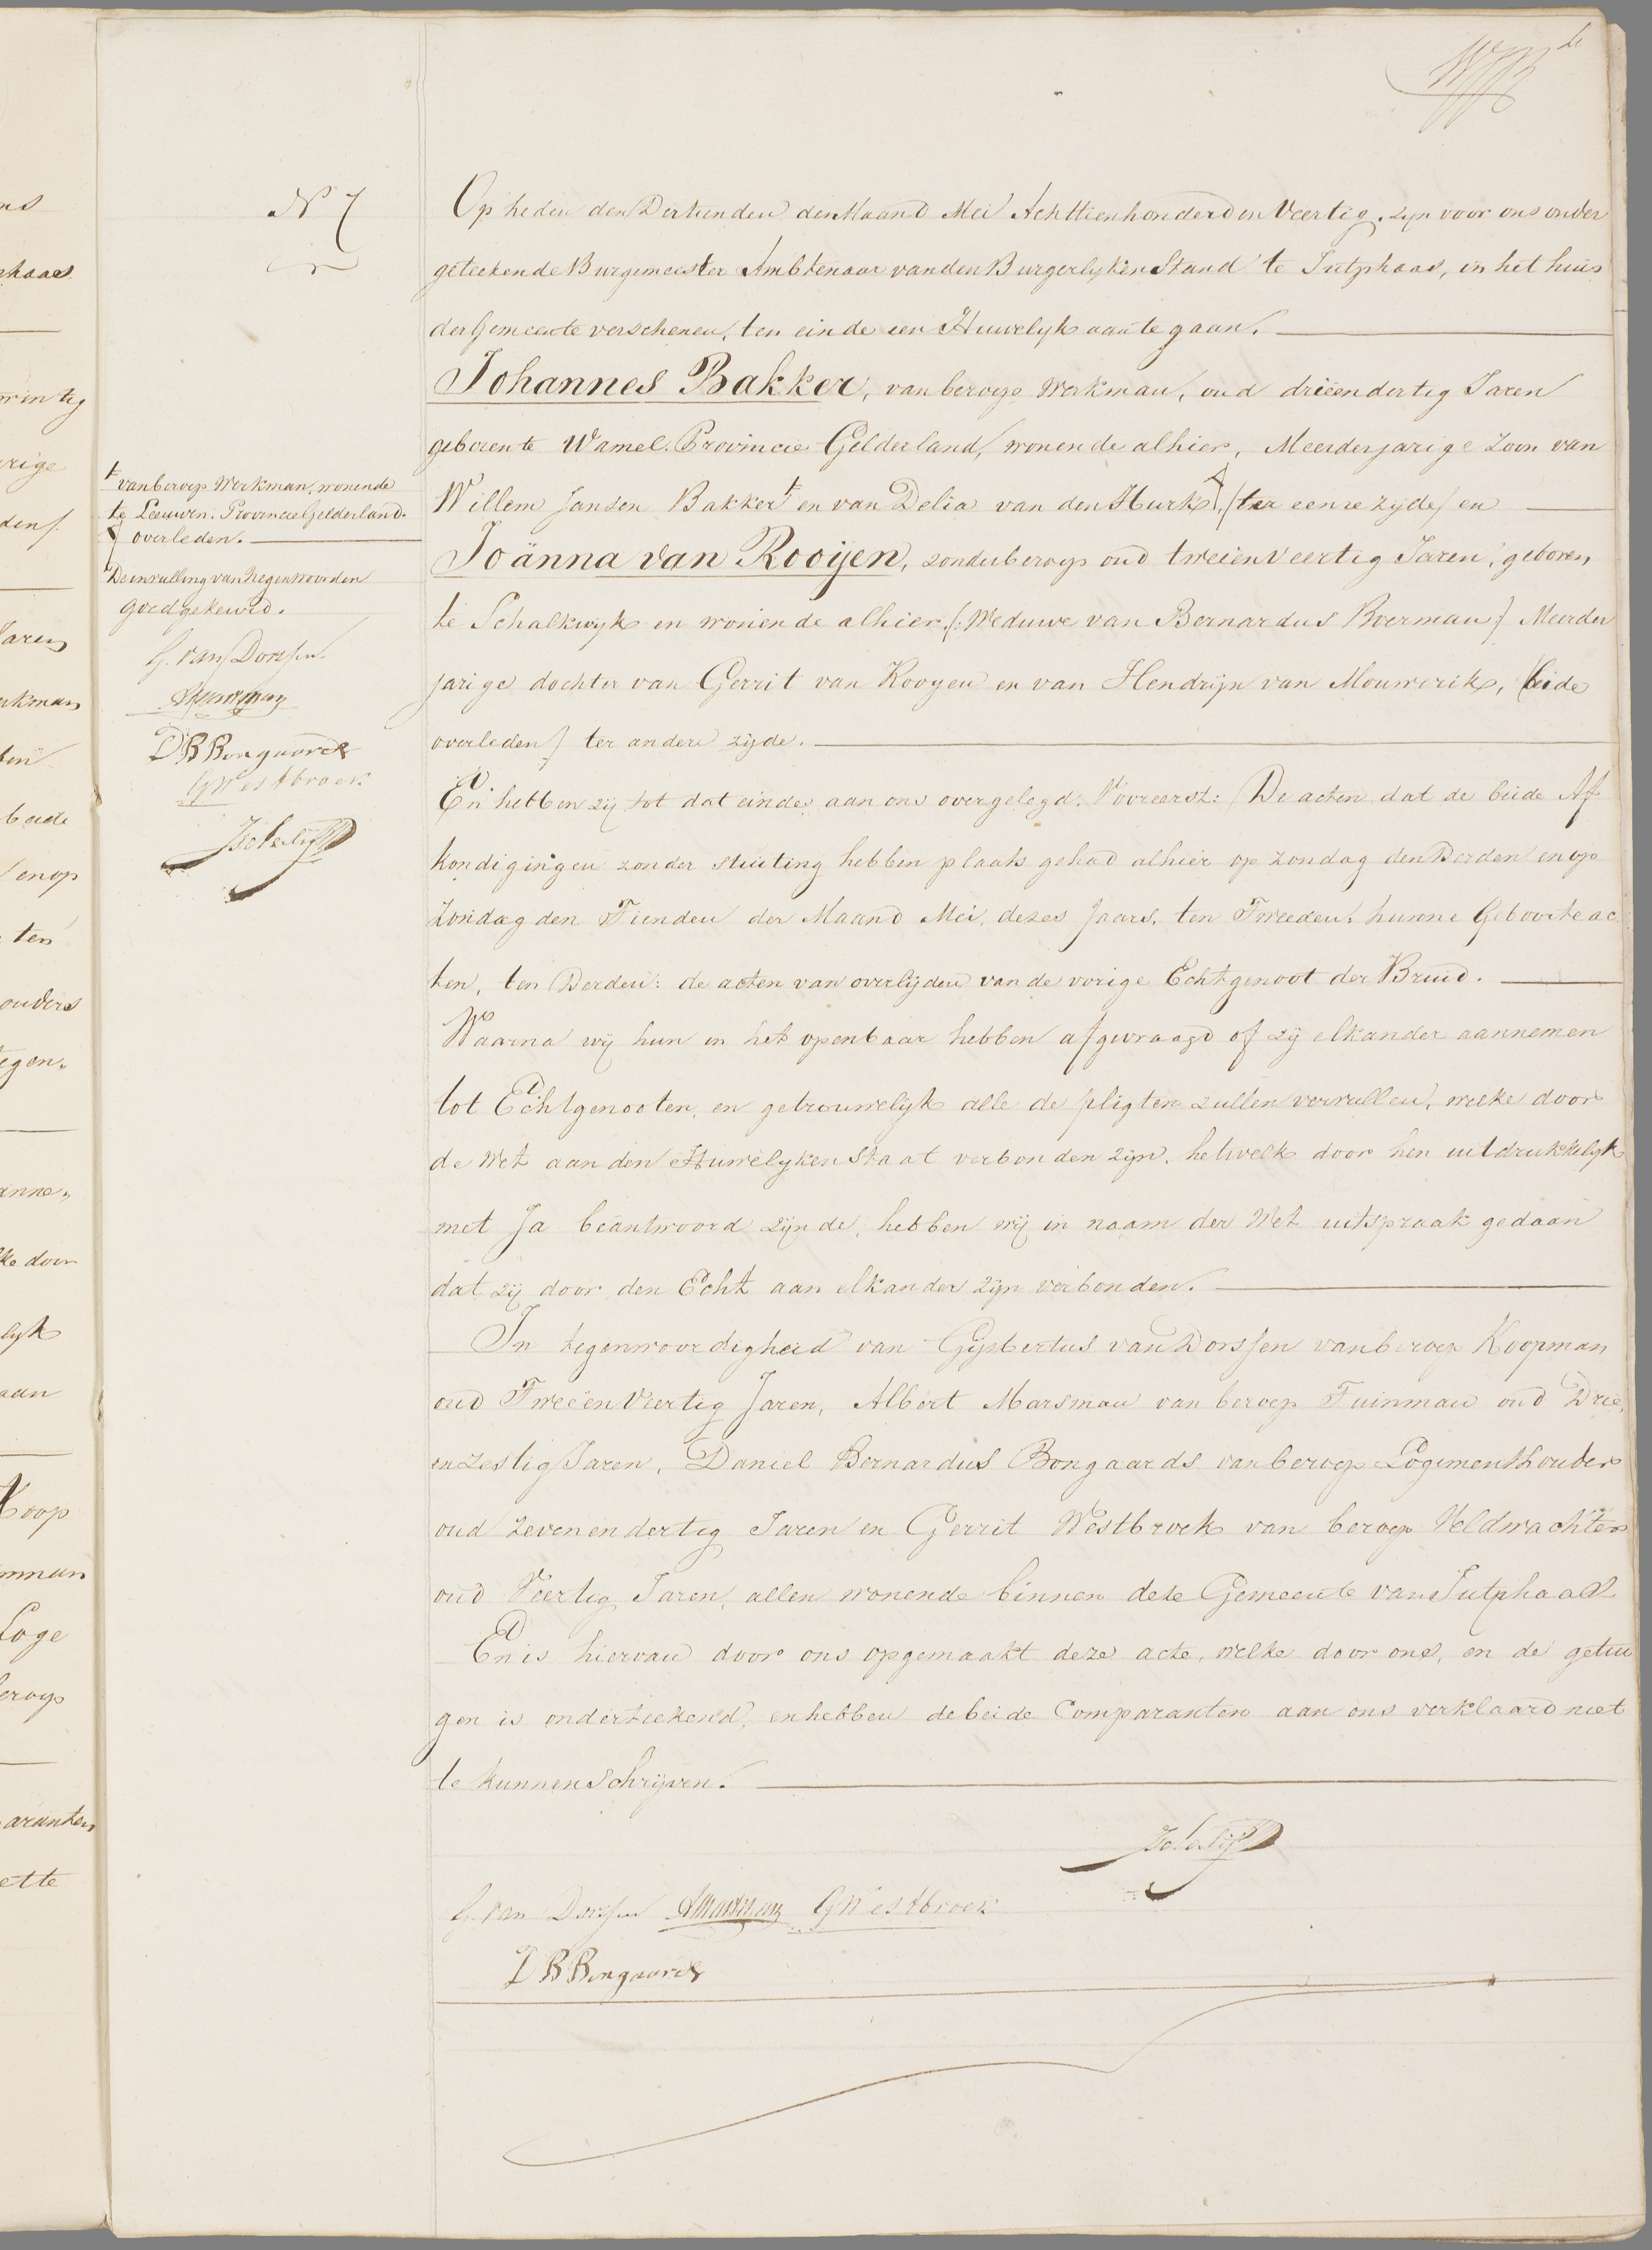 N 7
Op heden den Dertienden der Maand Mei Achttienhonderd en Veertig, zyn voor ons onder
geteekende Burgemeester Ambtenaar van den Burgerlyken Stand te Jutphaas, in het huis
der Gemeente verschenen, ten einde een Huwelyk aan te gaan.
Johannes Bakker, van beroep Werkman, oud drieendertig Jaren
geboren te Wamel Provincie Gelderland, wonende alhier, Meerderjarige Zoon van
Willem Jansen Bakker en van Delia van den Hurk, (ter eenre zijde) en
Joänna van Rooijen, zonder beroep oud tweeenveertig Jaren, geboren
te Schalkwyk en wonende alhier (: Weduwe van Bernardus Boerman) Meerder
jarige dochter van Gerrit van Rooyen en van Hendrijn van Mouwerik, (beide
overleden) ter andere zijde.
En hebben zij tot dat einde aan ons overgelegd: Vooreerst: De acten dat de beide Af
kondigingen zonder stuiting hebben plaats gehad alhier op zondag den Derden en op
zondag den Tienden der Maand Mei dezes Jaars, ten Tweeden: hunne Geboorte ac
ten, ten Derden: de acten van overlijden van de vorige Echtgenoot der Bruid.
Waarna wij hun in het openbaar hebben afgevraagd of zij elkander aannemen
tot Echtgenooten, en getrouwelyk alle de pligten zullen vervullen, welke door
de Wet aan den Huwelyken Staat verbonden zijn, hetwelk door hen uitdrukkelyk
met Ja beäntwoord zijnde, hebben wij in naam der Wet uitspraak gedaan
dat zij door den Echt aan elkander zijn verbonden.
In tegenwoordigheid van Gijsbertus van Dorssen van beroep Koopman
oud Tweeën Veertig Jaren, Albert Marsman van beroep Tuinman oud Drie
en Zestig Jaren, Daniel Bernardus Bongaards van beroep Logementhouder
oud zevenendertig Jaren en Gerrit Westbroek van beroep Veldwachter
oud Veertig Jaren, allen wonende binnen deze Gemeente van Jutphaas
En is hiervan door ons opgemaakt deze acte, welke door ons, en de getui
gen is onderteekend, en hebben de beide Comparanten aan ons verklaard niet
te kunnen Schrijven.
G. van Dorssen AMarsman GWestbroek
D B Bongaards
van beroep Werkman, wonende
te Leeuwen. Provincie Gelderland.
overleden.
De invulling van Negen woorden
goedgekeurd.
G. van Dorssen
AMarsman
D B Bongaards
GWestbroek
ns
phaas
win tig
rige
den/.
Jaren
rkman
beide
en op
ten
ouders
egen„
anne„
ke door
lyk
aan
Koop
nman
Loge
eroep
aranten
ette